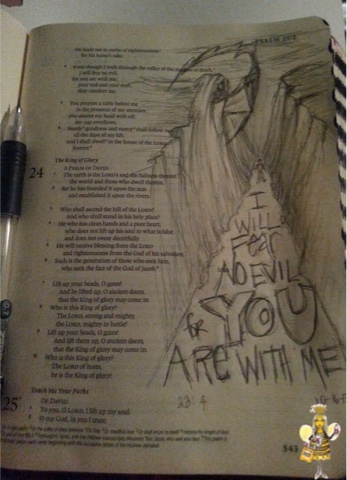 PSALM 23:5
He leads me in paths of righteousness
for his name's sake.
Even though I walk through the valley of the shadow of death,
I will fear no evil,
for you are with me;
your rod and your staff,
they comfort me.
You prepare a table before me
in the presence of my enemies;
you anoint my head with oil;
my cup overflows.
Surely goodness and mercy shall follow me
all the days of my life,
and I shall dwell in the house of the LORD
forever.
The King of Glory
24
A PSALM OF DAVID.
The earth is the LORD's and the fullness thereof,
the world and those who dwell therein,
for he has founded it upon the seas
and established it upon the rivers.
Who shall ascend the hill of the LORD?
And who shall stand in his holy place?
He who has clean hands and a pure heart,
who does not lift up his soul to what is false
and does not swear deceitfully.
He will receive blessing from the LORD
and righteousness from the God of his salvation.
Such is the generation of those who seek him,
who seek the face of the God of Jacob.
Lift up your heads, O gates!
And be lifted up, O ancient doors,
that the King of glory may come in.
Who is this King of glory?
The LORD, strong and mighty,
the LORD, mighty in battle!
Lift up your heads, O gates!
And lift them up, O ancient doors,
that the King of glory may come in.
Who is this King of glory?
The LORD of hosts,
he is the King of glory!
Teach Me Your Paths
25
OF DAVID.
To you, O LORD, I lift up my soul.
O my God, in you I trust;
I
WILL
FEAR
NO EVIL
for YOU
ARE WITH ME
23:4
543